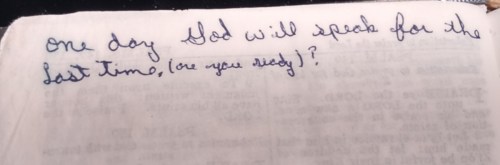 one day God will speak for the
last time. (are you ready)?